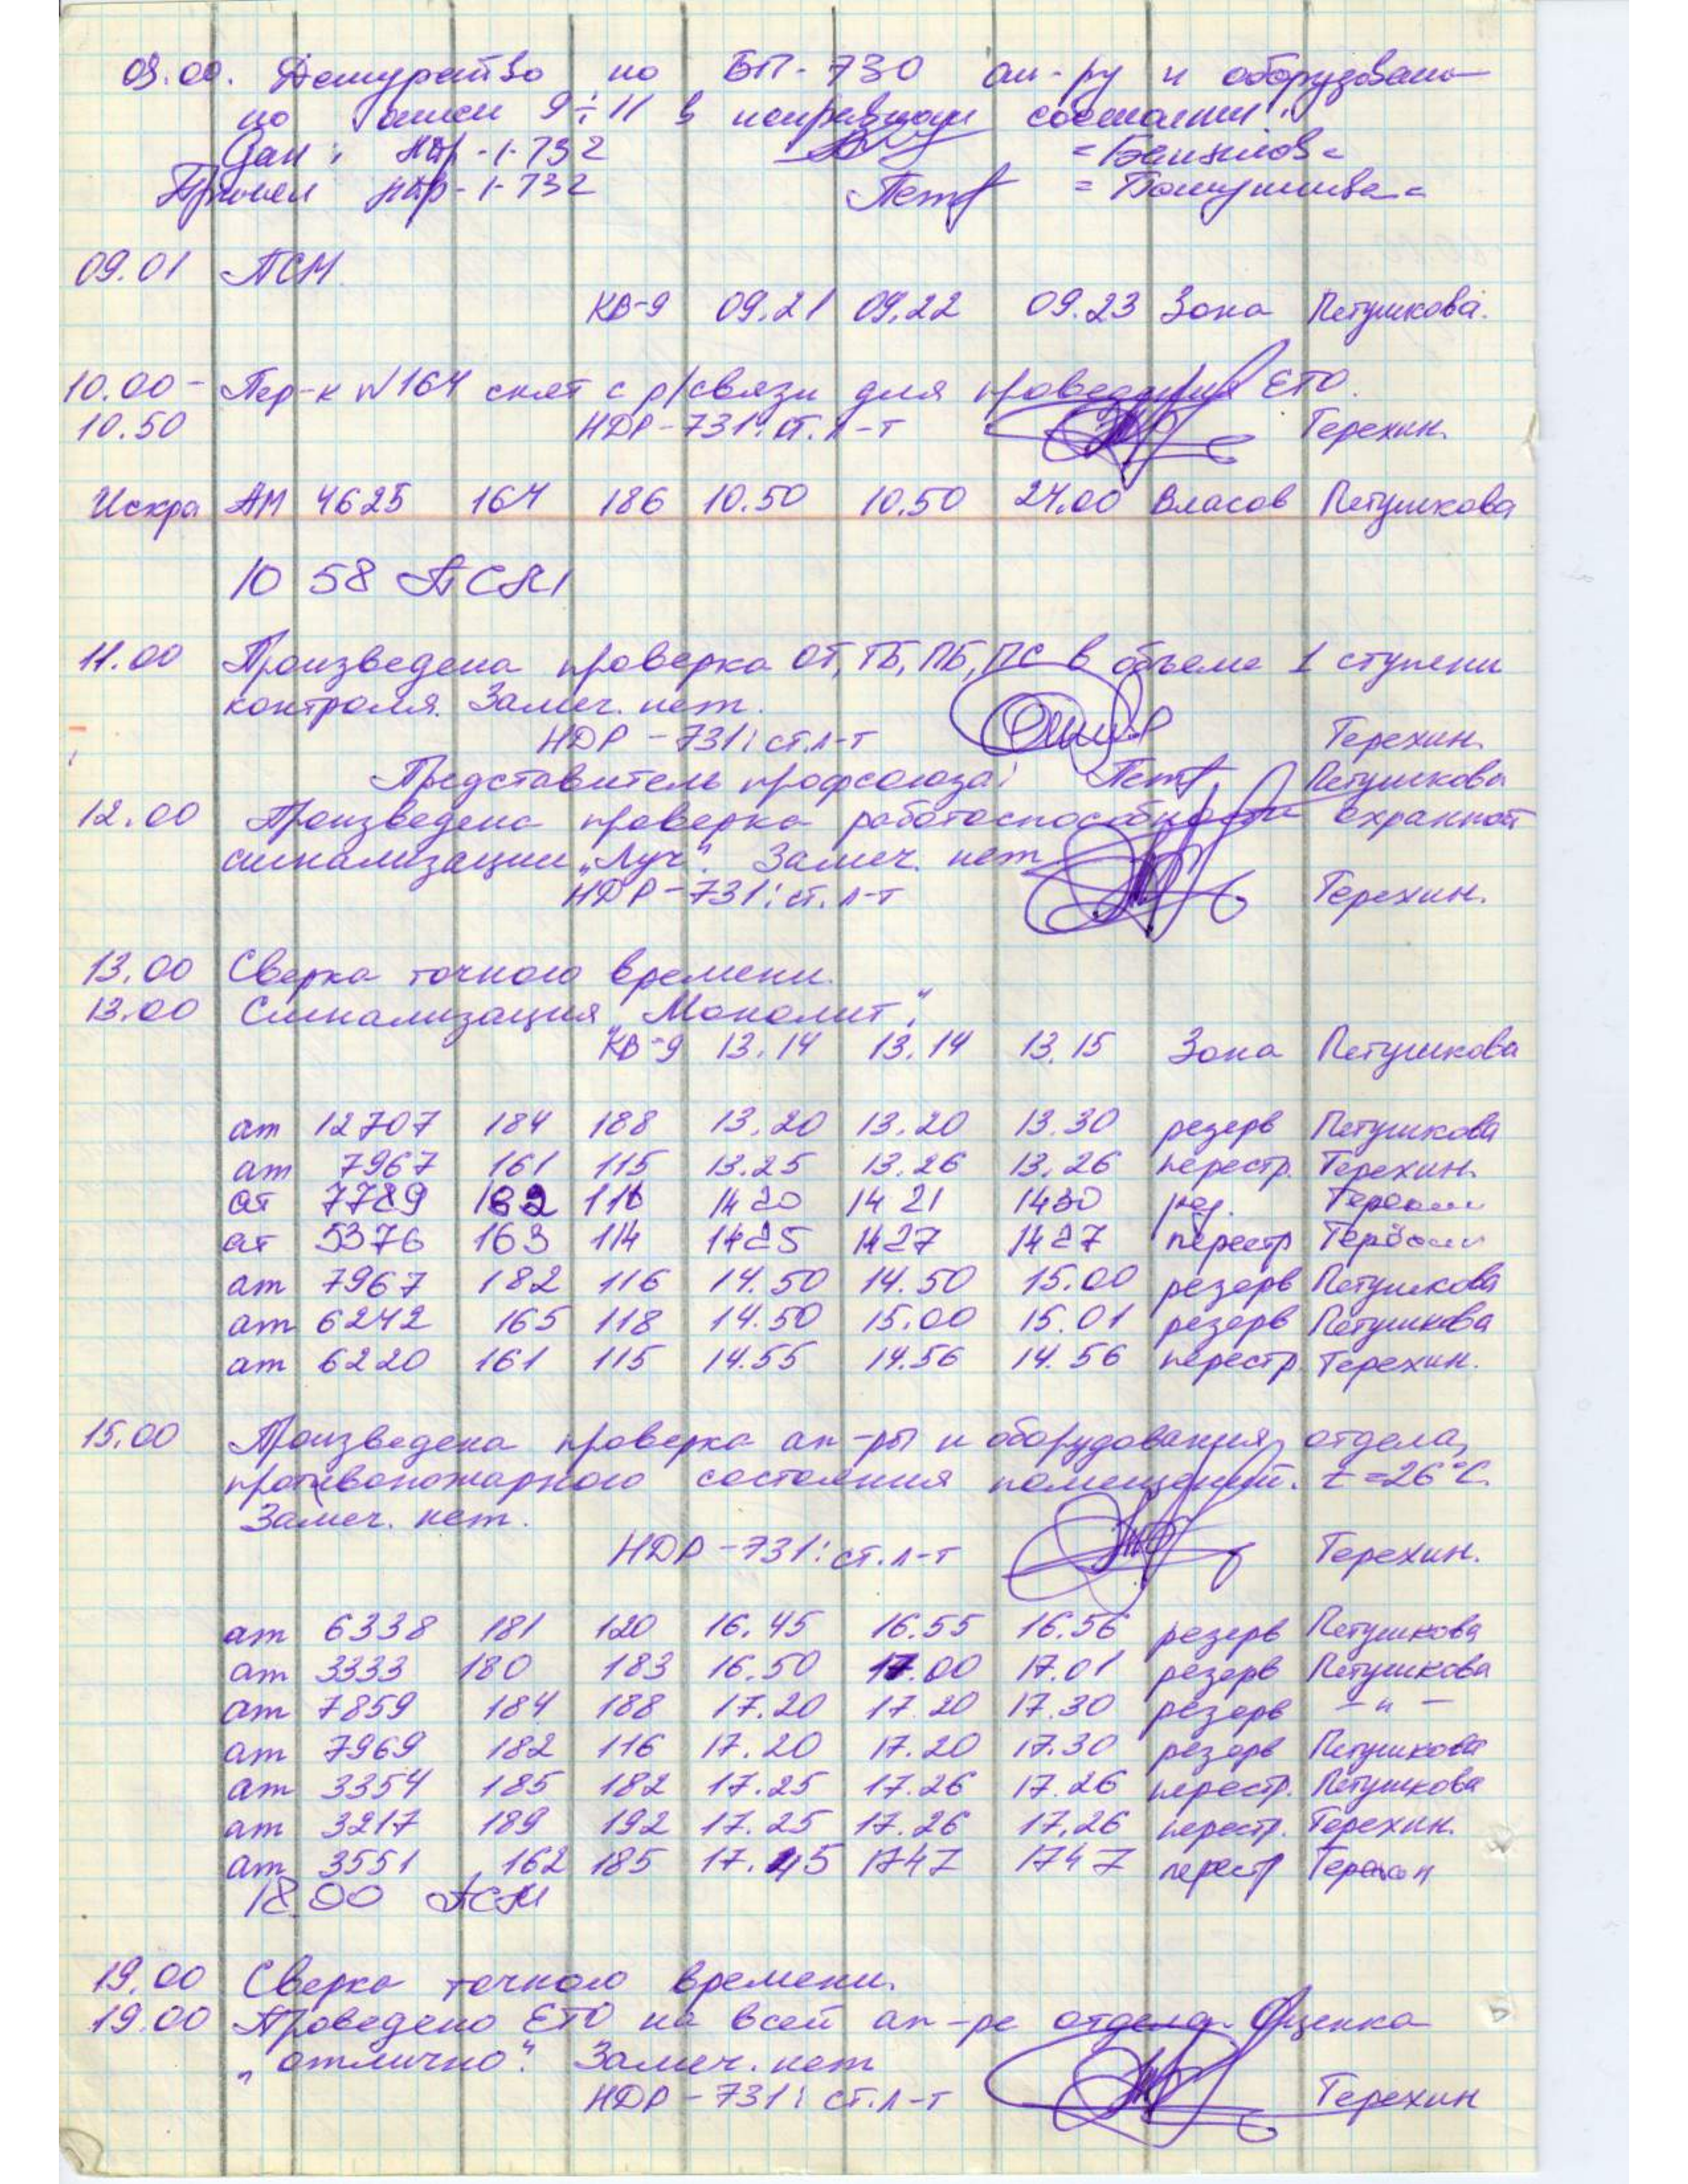 09.00. Дежурство по БП-730 ап-ру и оборудован-
по описи 9÷11 в исправном состоянии.
Сдал: НДР-1-732
Принял НДР-1-732 =Петушкова=
09.01 ПСМ.
КВ-9 09.21 09.22 09.23 Зона Петушкова.
10.00- Пер-к №164 снят с р/связи для проведения ЕТО.
10.50 НДР-731: ст. л-т Терехин.
Искра АМ 4625 164 186 10.50 10.50 24.00 Власов Петушкова
10 58 ПСМ
11.00 Произведена проверка ОТ, ТБ, ПБ, ПС в объеме 1 ступени
контроля. Замеч. нет.
НДР-731: ст. л-т Терехин.
Представитель профсоюза: Петушкова
12.00 Произведена проверка работоспособности охранной
сигнализации „Луч". Замеч. нет
НДР-731: ст. л-т Терехин.
13.00 Сверка точного времени.
13.00 Сигнализация „Монолит".
КВ-9 13.14 13.14 13.15 Зона Петушкова
ат 12707 184 188 13.20 13.20 13.30 резерв Петушкова
ат 7967 161 115 13.25 13.26 13.26 перестр. Терехин.
ат 7789 182 116 14 20 14 21 1430 рез. Терехин
ат 5376 163 114 1425 1427 1427 перестр Терехин
ат 7967 182 116 14.50 14.50 15.00 резерв Петушкова
ат 6242 165 118 14.50 15.00 15.01 резерв Петушкова
ат 6220 161 115 14.55 14.56 14.56 перестр Терехин.
15.00 Произведена проверка ап-ры и оборудования отдела,
противопожарного состояния помещений. t=26°C.
Замеч. нет.
НДР-731: ст. л-т Терехин.
ат 6338 181 120 16.45 16.55 16.56 резерв Петушкова
ат 3333 180 183 16.50 17.00 17.01 резерв Петушкова
ат 7859 184 188 17.20 17.20 17.30 резерв -"-
ат 7969 182 116 17.20 17.20 17.30 резерв Петушкова
ат 3354 185 182 17.25 17.26 17.26 перестр. Петушкова
ат 3217 189 192 17.25 17.26 17.26 перестр. Терехин.
ат 3551 162 185 17.45 1747 1747 перестр Терехин
18.00 ПСМ
19.00 Сверка точного времени.
19.00 Проведено ЕТО на всей ап-ре отдела. Оценка
„отлично". Замеч. нет
НДР-731: ст. л-т Терехин